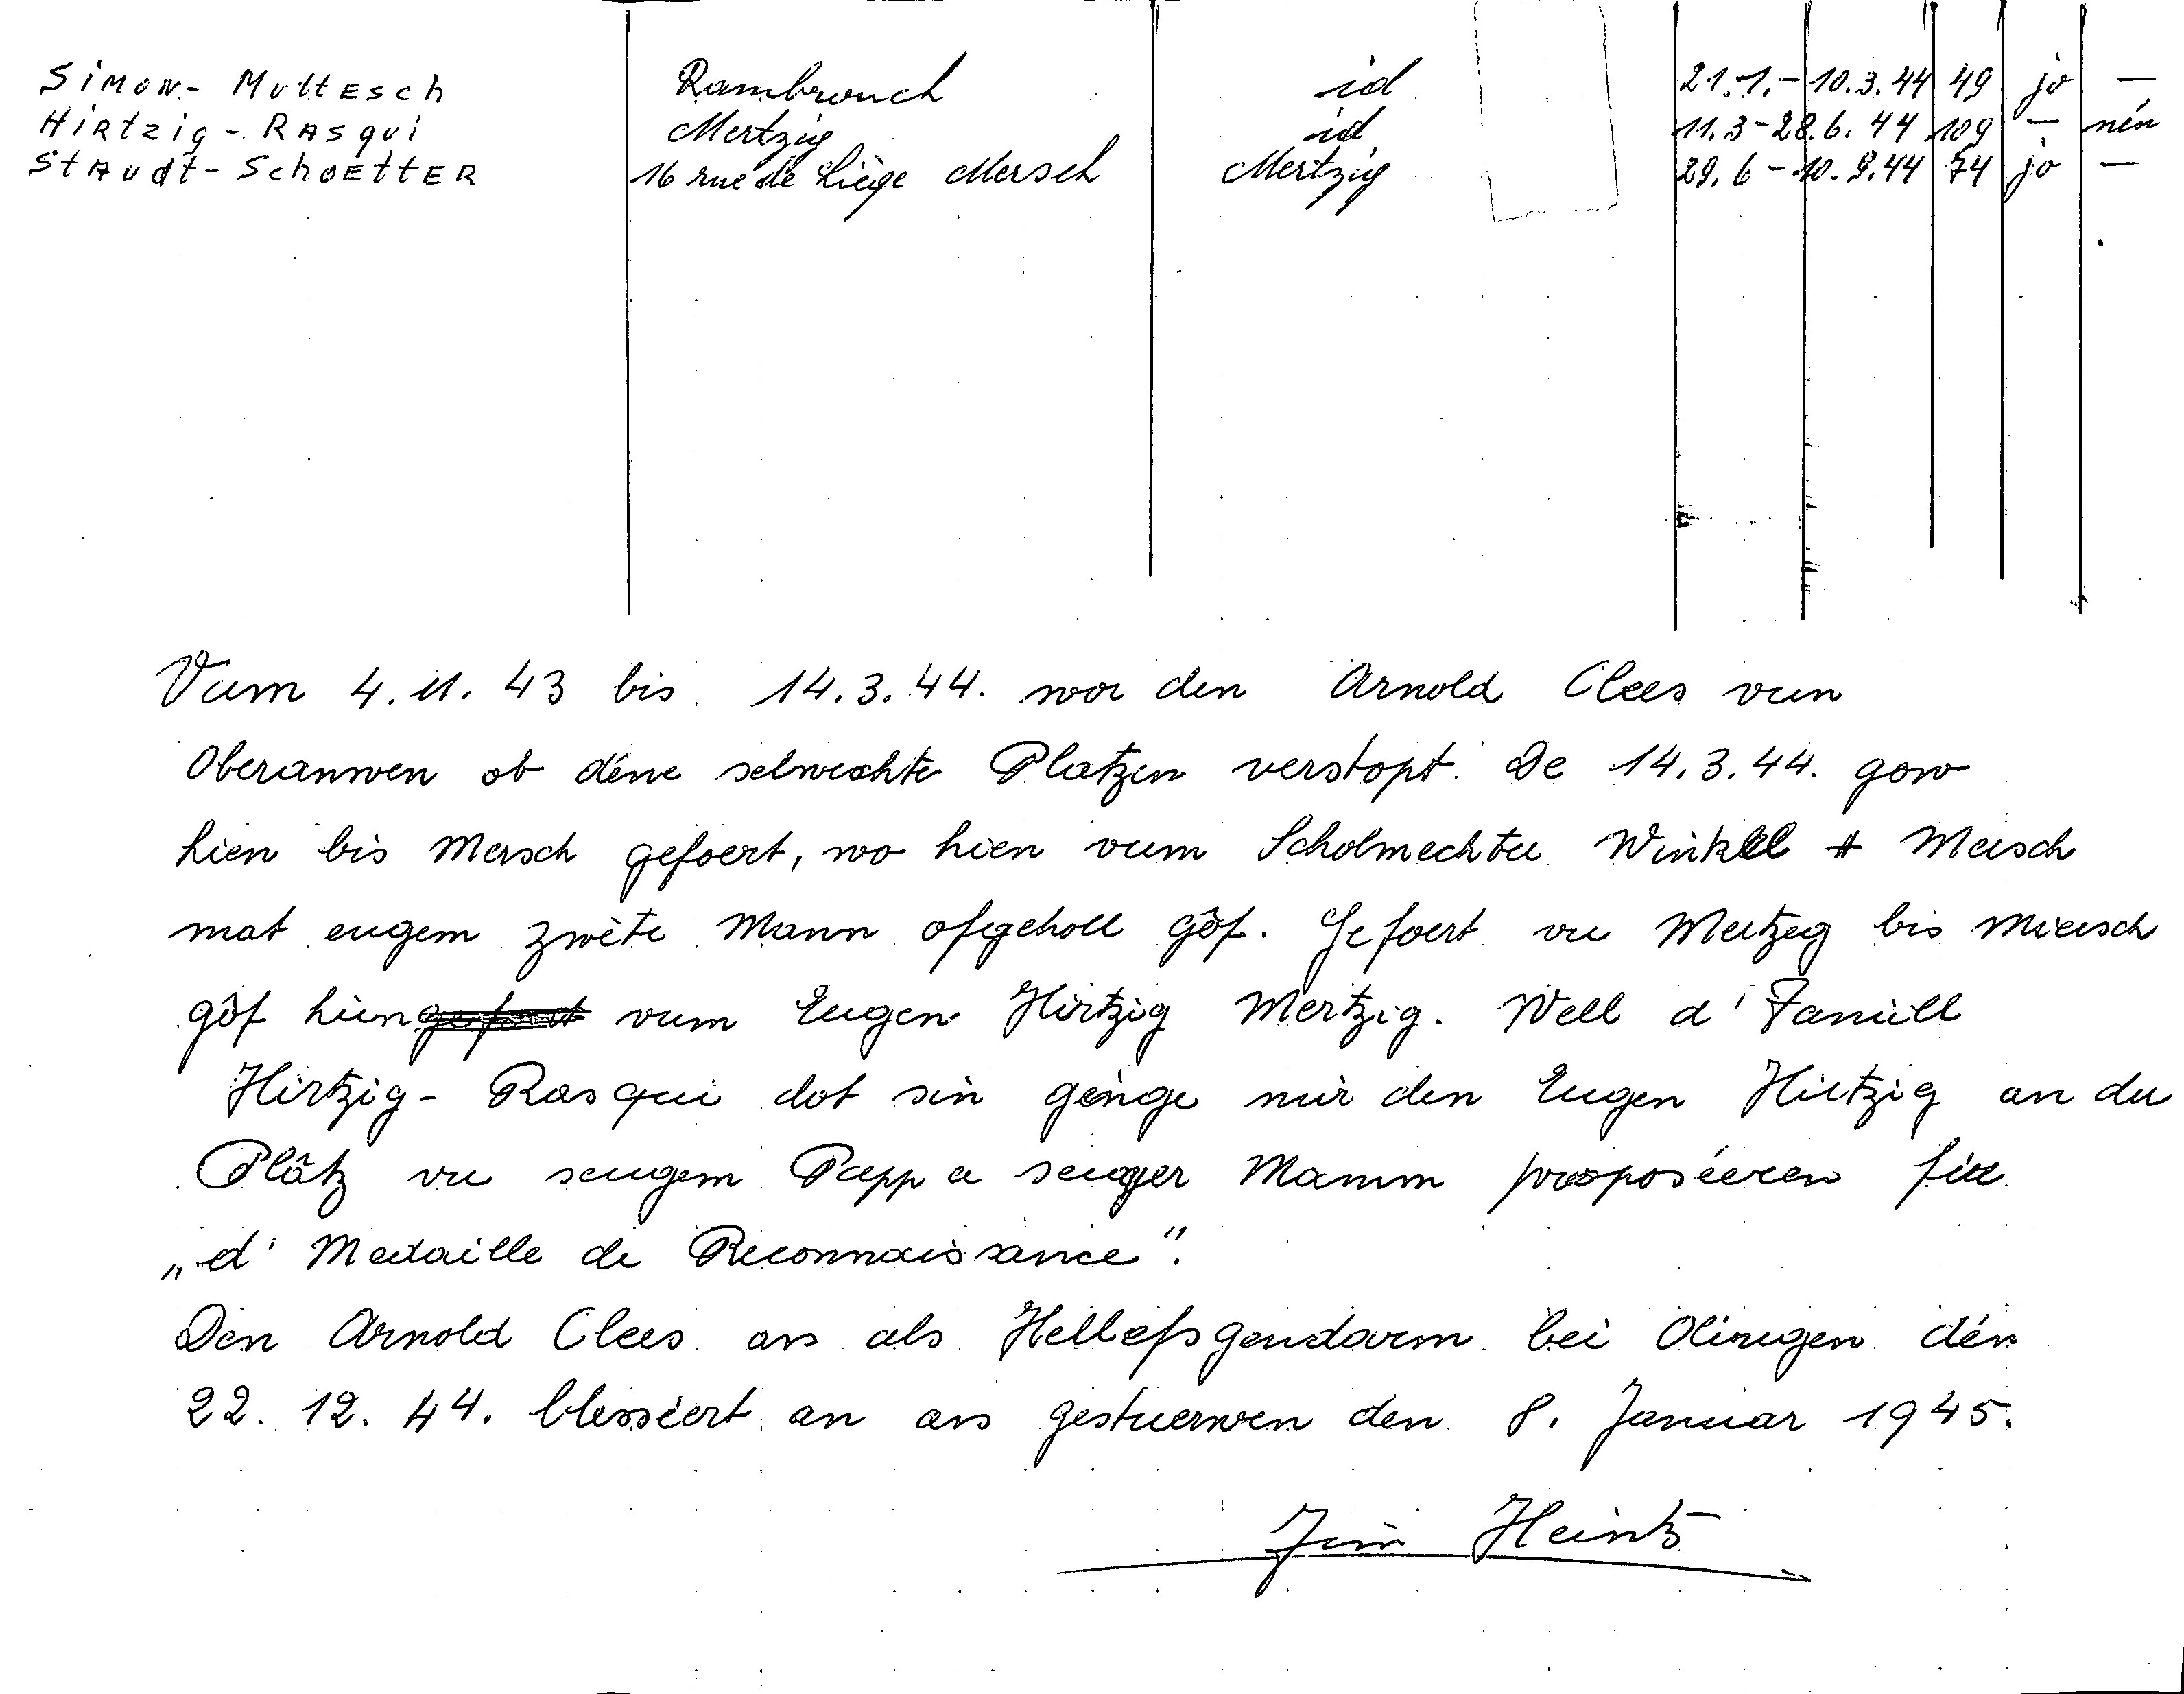 Simon - Muttesch Rambrouch id 21.1.- 10.3.44 49 jo —
Hirtzig - Rasqui Mertzig id 11.3 - 28.6.44 109 — nén
Staudt - Schoetter 16 rue de Liège Mersch Mertzig 29.6 - 10.9.44 74 jo —
Vum 4.11.43 bis 14.3.44. wor den Arnold Clees vun
Oberanwen ob déne selwechte Platzen verstopt. De 14.3.44. gow
hien bis Mersch gefoert, wo hien vum Scholmechter Winkel Mersch
mat engem zwète Mann ofgeholl gôf. Gefoert vu Mertzeg bis Miersch
gôf hien vum Eugen Hirtzig Mertzig. Well d'Famill
Hirtzig - Rasqui dot sin génge mir den Eugen Hirtzig an der
Plâtz vu sengem Papp a senger Mamm proposéeren fir
„d' Medaille de Reconnaissance".
Den Arnold Clees as als Hellefsgendarm bei Olingen dén
22.12.44. blesséert an as gestuerwen den 8. Januar 1945.
Jim Heintz